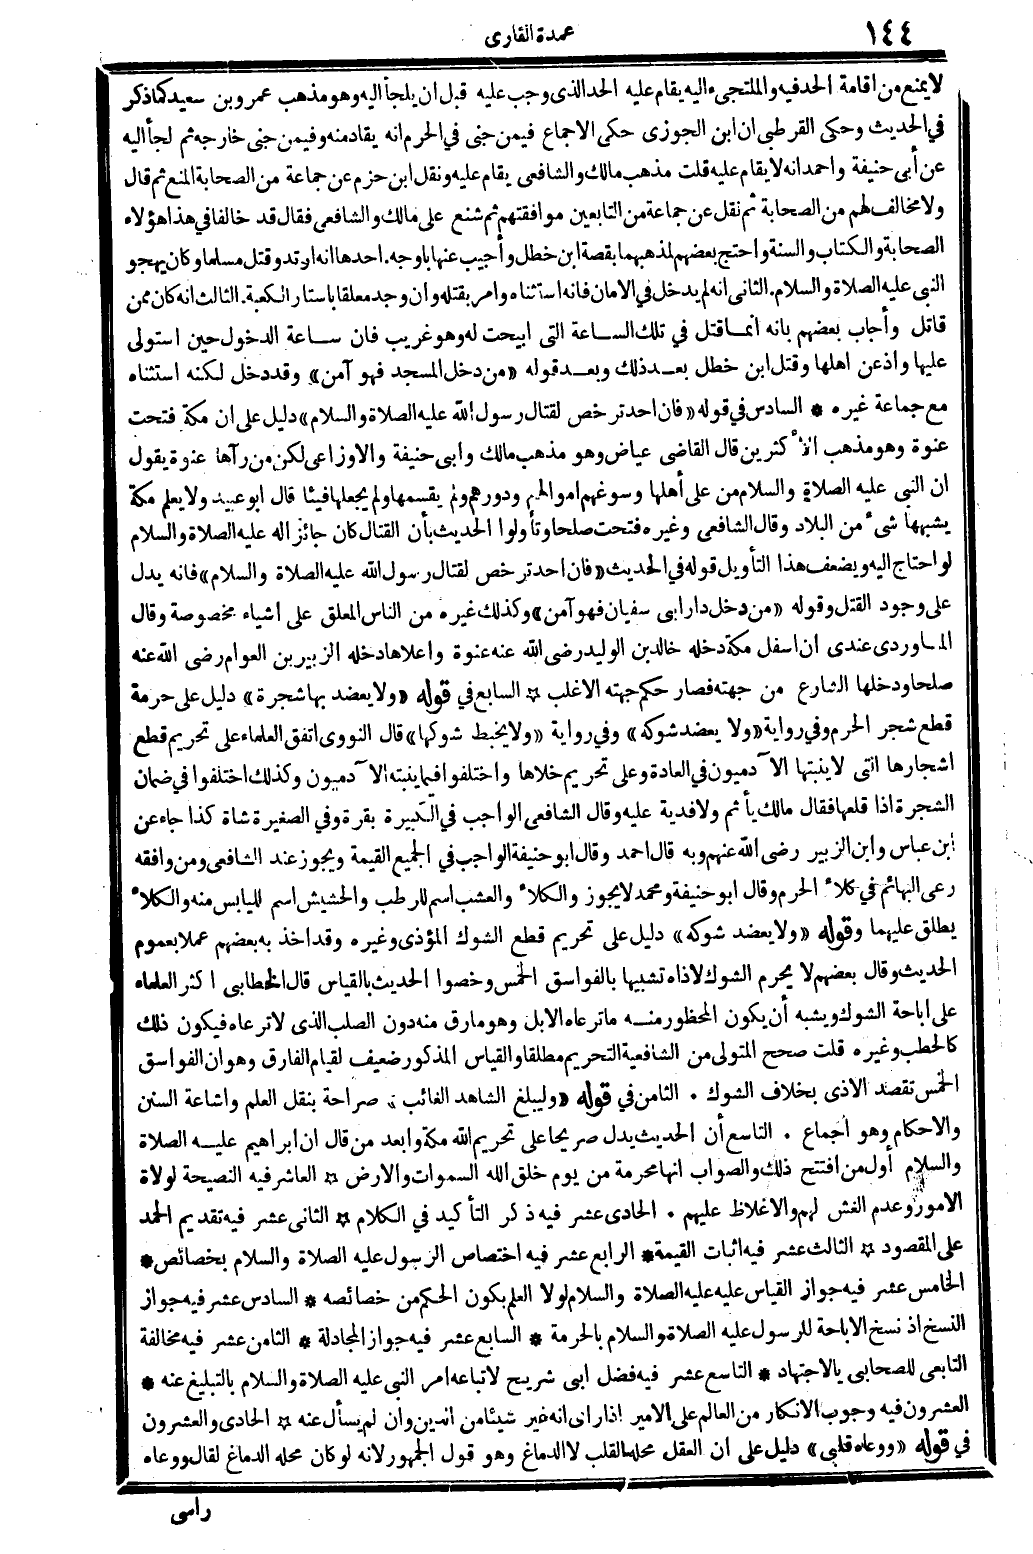 ١٤٤
عمدة القارى
لا يمنع من اقامة الحد فيه والملتجىء اليه يقام عليه الحد الذى وجب عليه قبل ان يلجأ اليه وهو مذهب عمرو بن سعيد كما ذكر
في الحديث وحكى القرطبى ان ابن الجوزى حكى الاجماع فيمن جنى في الحرم انه يقاد منه وفيمن جنى خارجه ثم لجأ اليه
عن أبى حنيفة واحمد انه لا يقام عليه قلت مذهب مالك والشافعى يقام عليه ونقل ابن حزم عن جماعة من الصحابة المنع ثم قال
ولا مخالف لهم من الصحابة ثم نقل عن جماعة من التابعين موافقتهم ثم شنع على مالك والشافعى فقال قد خالفا في هذا هؤلاء
الصحابة والكتاب والسنة واحتج بعضهم لمذهبهما بقصة ابن خطل وأجيب عنها باوجه. احدها انه ارتد وقتل مسلما وكان يهجو
النبى عليه الصلاة والسلام. الثانى انه لم يدخل في الامان فانه استثناه وامر بقتله وان وجد معلقا باستار الكعبة. الثالث انه كان ممن
قاتل وأجاب بعضهم بانه انما قتل في تلك الساعة التى ابيحت له وهو غريب فان ساعة الدخول حين استولى
عليها واذعن اهلها وقتل ابن خطل بعد ذلك وبعد قوله «من دخل المسجد فهو آمن» وقد دخل لكنه استثناه
مع جماعة غيره * السادس في قوله «فان احد ترخص لقتال رسول الله عليه الصلاة والسلام» دليل على ان مكة فتحت
عنوة وهو مذهب الأكثرين قال القاضى عياض وهو مذهب مالك وابى حنيفة والاوزاعى لكن من رآها عنوة يقول
ان النبى عليه الصلاة والسلام من على أهلها وسوغهم اموالهم ودورهم ولم يقسمها ولم يجعلها فيئا قال ابو عبيد ولا يعلم مكة
يشبهها شىء من البلاد وقال الشافعى وغيره فتحت صلحا وتأولوا الحديث بأن القتال كان جائزا له عليه الصلاة والسلام
لو احتاج اليه ويضعف هذا التأويل قوله في الحديث «فان احد ترخص لقتال رسول الله عليه الصلاة والسلام» فانه يدل
على وجود القتل وقوله «من دخل دار ابى سفيان فهو آمن» وكذلك غيره من الناس المعلق على اشياء مخصوصة وقال
الماوردى عندى ان اسفل مكة دخله خالد بن الوليد رضى الله عنه عنوة واعلاها دخله الزبير بن العوام رضى الله عنه
صلحا ودخلها الشارع من جهته فصار حكم جهته الاغلب ☆ السابع في قوله «ولا يعضد بها شجرة» دليل على حرمة
قطع شجر الحرم وفي رواية «ولا يعضد شوكه» وفي رواية «ولا يخبط شوكها» قال النووى اتفق العلماء على تحريم قطع
اشجارها التى لا ينبتها الآدميون في العادة وعلى تحريم خلاها واختلفوا فيما ينبته الآدميون وكذلك اختلفوا في ضمان
الشجرة اذا قلعها فقال مالك يأثم ولا فدية عليه وقال الشافعى الواجب في الكبيرة بقرة وفي الصغيرة شاة كذا جاء عن
ابن عباس وابن الزبير رضى الله عنهم وبه قال احمد وقال ابو حنيفة الواجب في الجميع القيمة ويجوز عند الشافعى ومن وافقه
رعى البهائم في كلاء الحرم وقال ابو حنيفة ومحمد لا يجوز والكلاء والعشب اسم للرطب والحشيش اسم لليابس منه والكلاء
يطلق عليهما وقوله «ولا يعضد شوكه» دليل على تحريم قطع الشوك المؤذى وغيره وقد اخذ به بعضهم عملا بعموم
الحديث وقال بعضهم لا يحرم الشوك لاذاه تشبيها بالفواسق الخمس وخصوا الحديث بالقياس قال الخطابى اكثر العلماء
على اباحة الشوك ويشبه أن يكون المحظور منه ما ترعاه الابل وهو ما رق منه دون الصلب الذى لا ترعاه فيكون ذلك
كالحطب وغيره قلت صحح المتولى من الشافعية التحريم مطلقا والقياس المذكور ضعيف لقيام الفارق وهو ان الفواسق
الخمس تقصد الاذى بخلاف الشوك . الثامن في قوله «وليبلغ الشاهد الغائب» صراحة بنقل العلم واشاعة السنن
والاحكام وهو اجماع . التاسع أن الحديث يدل صريحا على تحريم الله مكة وابعد من قال ان ابراهيم عليه الصلاة
والسلام أول من افتتح ذلك والصواب انها محرمة من يوم خلق الله السموات والارض ☆ العاشر فيه النصيحة لولاة
الامور وعدم الغش لهم والاغلاظ عليهم . الحادى عشر فيه ذكر التأكيد في الكلام ☆ الثانى عشر فيه تقديم الحمد
على المقصود ☆ الثالث عشر فيه اثبات القيمة * الرابع عشر فيه اختصاص الرسول عليه الصلاة والسلام بخصائص *
الخامس عشر فيه جواز القياس عليه عليه الصلاة والسلام لولا العلم بكون الحكم من خصائصه * السادس عشر فيه جواز
النسخ اذ نسخ الاباحة للرسول عليه الصلاة والسلام بالحرمة * السابع عشر فيه جواز المجادلة * الثامن عشر فيه مخالفة
التابعى للصحابى بالاجتهاد * التاسع عشر فيه فضل ابى شريح لاتباعه امر النبى عليه الصلاة والسلام بالتبليغ عنه *
العشرون فيه وجوب الانكار من العالم على الامير اذا راى انه غير شيئا من الدين وان لم يسأل عنه ☆ الحادى والعشرون
في قوله «ووعاه قلبى» دليل على ان العقل محله القلب لا الدماغ وهو قول الجمهور لانه لو كان محله الدماغ لقال ووعاه
راسى